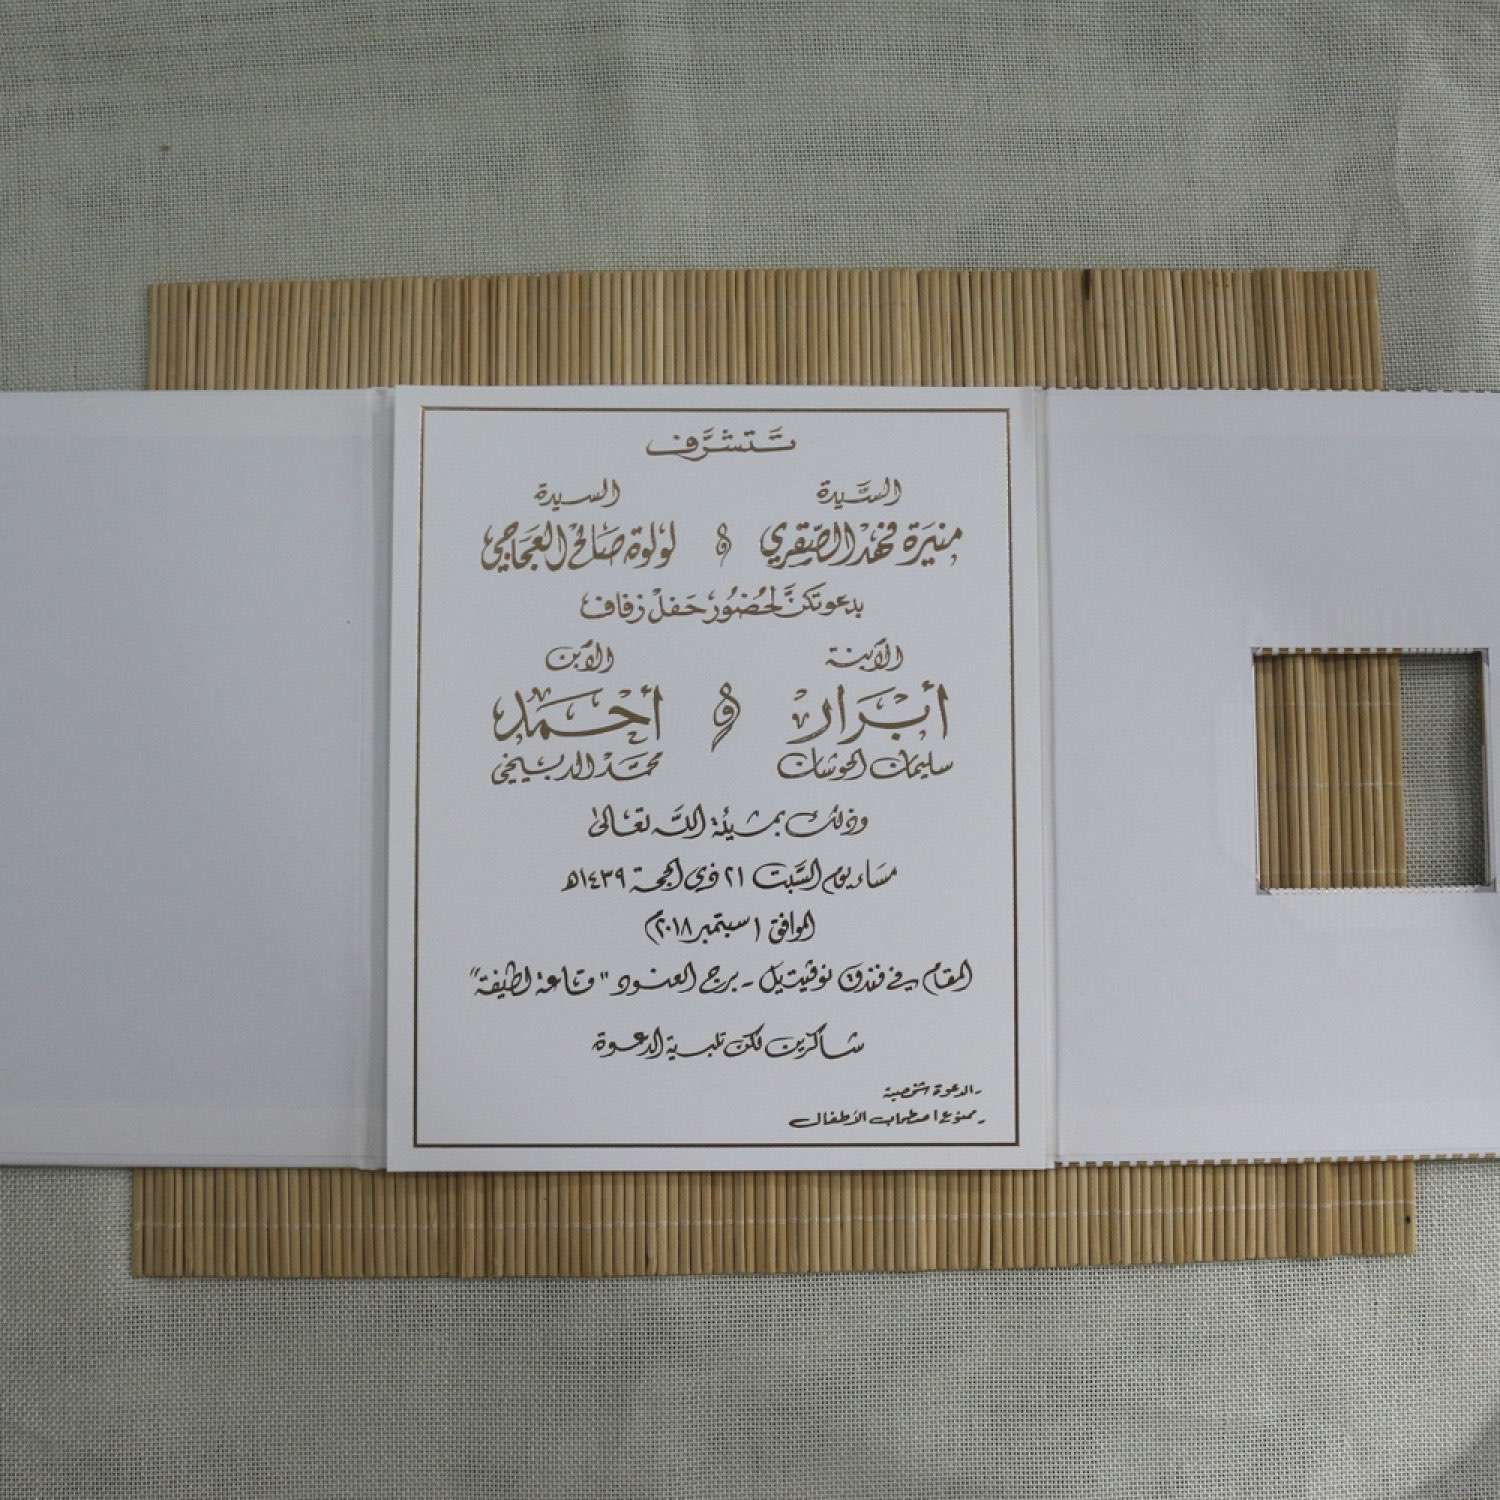 تتشرف
السيدة السيدة
منيرة فهد الصقري و لولوة صالح العجاجي
بدعوتكن لحضور حفل زفاف
الابنة الابن
أبرار و أحمد
سليمان الحوشان محمد الدبيخي
وذلك بمشيئة الله تعالى
مساء يوم السبت ٢١ ذي الحجة ١٤٣٩هـ
الموافق ١ سبتمبر ٢٠١٨م
المقام في فندق نوفيتيل - برج العنود "قاعة لطيفة"
شاكرين لكن تلبية الدعوة
- الدعوة شخصية
- ممنوع اصطحاب الأطفال